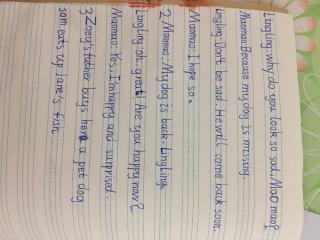 Lingling: why do you look so sad, Mao mao?
Maomao: Because my dog is missing.
Lingling: Don't be sad. He will come back soon.
Maomao: I hope so.
2 Maomao: My dog is back. Lingling.
Lingling: oh. great! Are you happy now?
Maomao: Yes, I'm happy and surprised.
3 Zoey's father buys her a pet dog
som eats up Jane's fish